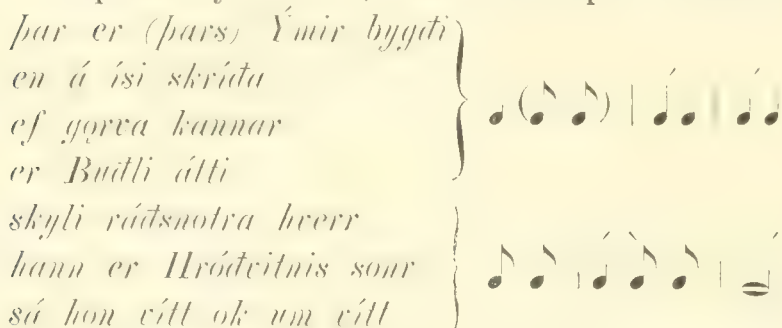 þar er (þars) Ýmir bygði
en á ísi skríða
ef gǫrva kannar
er Buðli átti
skyli ráðsnotra hverr
hann er Hróðvitnis sonr
sá hon vítt ok um vítt